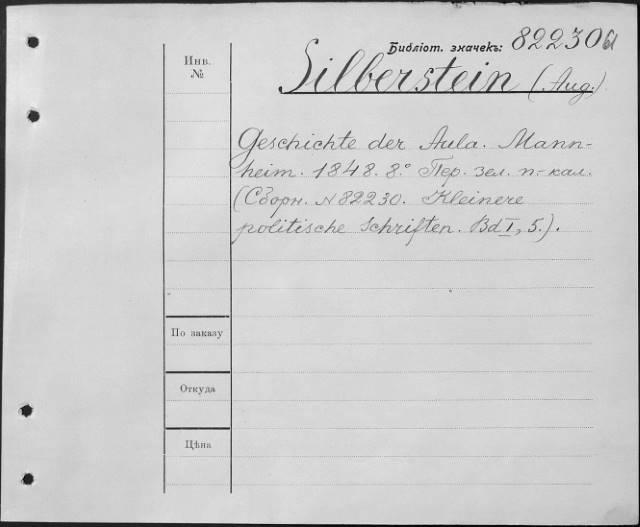 Библіот. значекъ: 82230
Инв.
№
Silberstein (Aug.)
Geschichte der Aula. Mann-
heim. 1848. 8.° Пер. зел. п-кал.
(Сборн. №82230. Kleinere
politische Schriften. Bd I, 5.).
По заказу
Откуда
Цѣна